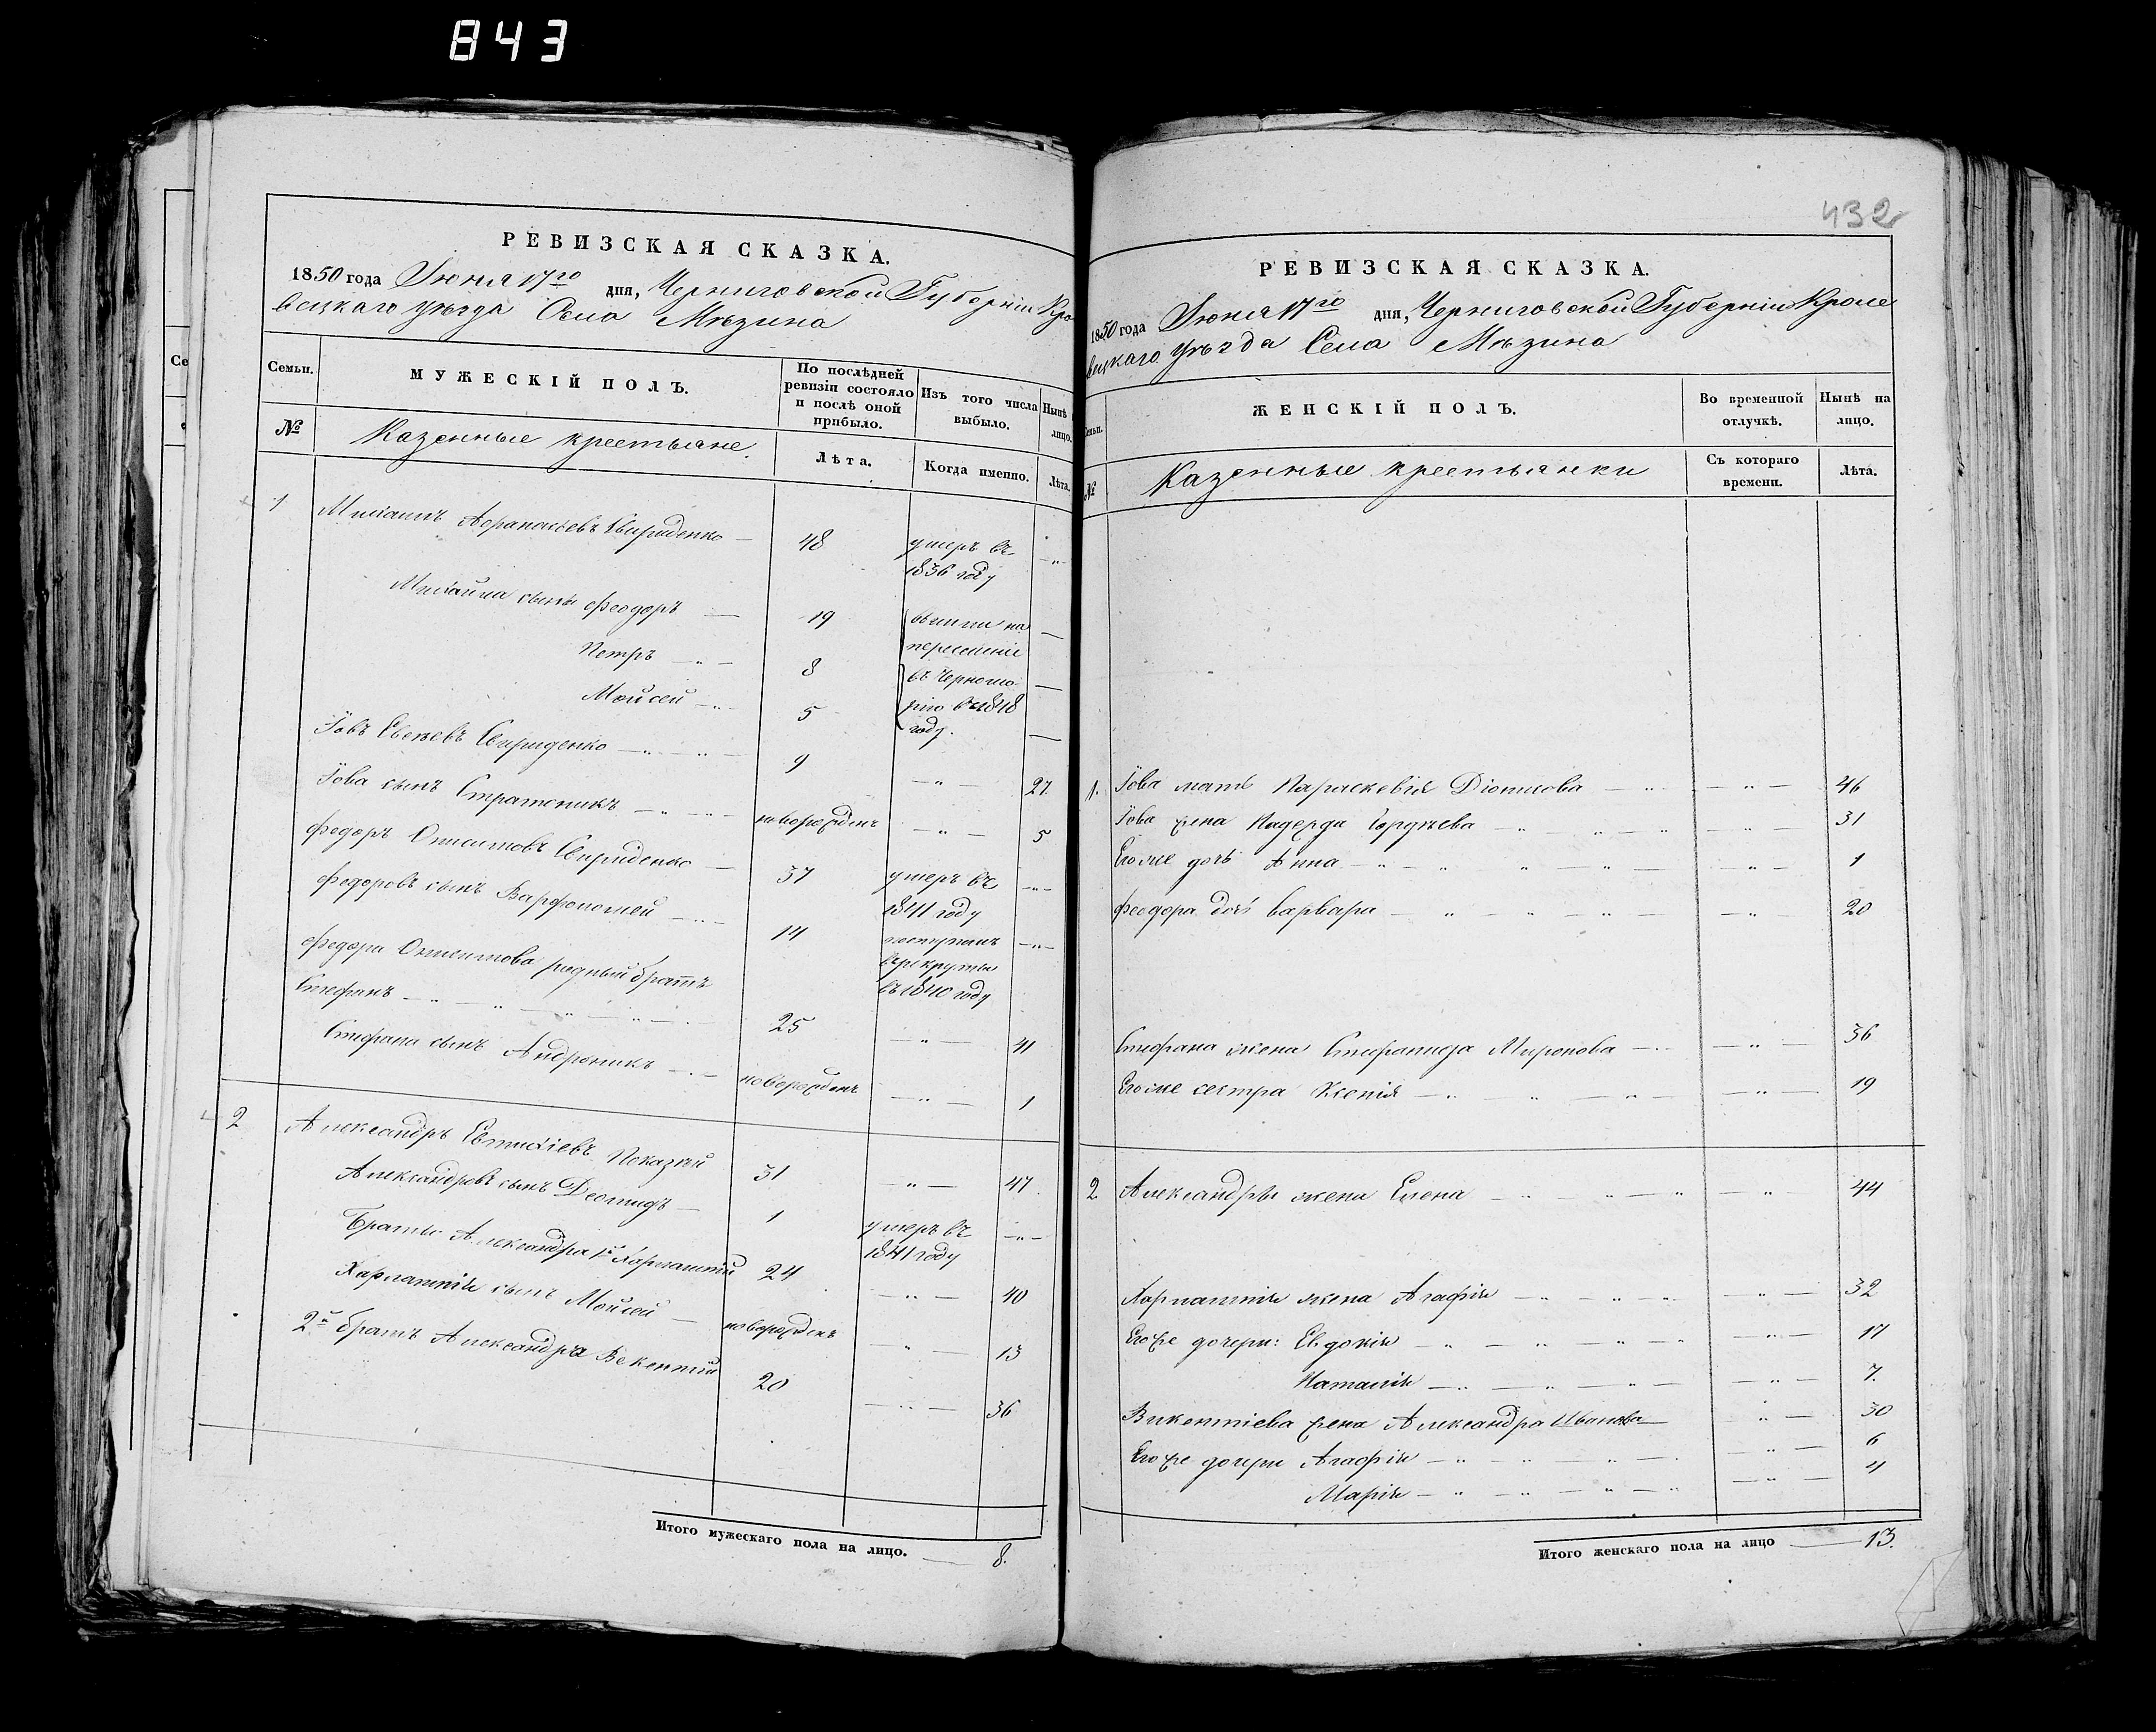 843
РЕВИЗСКАЯ СКАЗКА.
1850 года Іюня 17го дня, Черниговской Губерніи Кро
вецкаго уѣзда Села Мѣзина
Семьи.
МУЖЕСКІЙ ПОЛЪ.
По послѣдней ревизіи состояло и послѣ оной прибыло.
Изъ того числа выбыло.
Нынѣ лицо.
№
Казенные крестьяне.
Лѣта.
Когда именно.
Лѣта.
1 Михаилъ Афранасьевъ Свириденко — 48 умеръ въ —"—
1836 году
Михайла сыны Феодоръ — 19 вышли на —
переселеніе
Петръ —"— 8 въ Черномо- —
Мойсей —"— 5 рію въ 1848 —
году.
Іовъ Евсѣевъ Свириденко —"—"— 9 —"— 27
Іова сынъ Стратоникъ —"—"— новорожденъ —"— 5
Федоръ Онисимовъ Свириденко — 37 умеръ въ —"—
1841 году
Федоровъ сынъ Варфоломей —"— 14 поступилъ —"—
въ рекруты
въ 1840 году
Федора Онисимова родный братъ
Стефанъ —"—"—"—"— 25 "— 41
Стефана сынъ Андроникъ —"— новорожденъ —"— 1
2 Александръ Евтихіевъ Показій 31 —"— 47
Александровъ сынъ Леонидъ — 1 умеръ въ —"—
1841 году
Братья Александра 1й Харлампій 24 —"— 40
Харлампія сынъ Мойсей — новорожденъ —"— 13
2й братъ Александра Векентій 20 —"— 36
Итого мужескаго пола на лицо. — 8.
432
РЕВИЗСКАЯ СКАЗКА.
1850 года Іюня 17го дня, Черниговской Губерніи Кроле
вецкаго уѣзда Села Мѣзина
Семьи.
ЖЕНСКІЙ ПОЛЪ.
Во временной отлучкѣ.
Нынѣ на лицо.
№
Казенные крестьянки
Съ котораго времени.
Лѣта.
1. Іова мать Параскевія Діонисова —"— —"— 46
Іова жена Надежда Гордѣева —"—"—"— —"— 31
Его же дочь Анна —"—"—"—"— —"— 1
Феодора дочь Варвара —"—"—"— —"— 20
Стефана жена Стефанида Миронова —"— —"— 36
Его же сестра Ксенія —"—"—"— —"— 19
2 Александра жена Елена —"—"—"— —"— 44
Харлампія жена Агафія —"—"—"— —"— 32
Его же дочери: Евдокія —"—"—"— —"— 17
Наталія —"—"—"— —"— 7.
Викентіева жена Александра Иванова "— 30
Его же дочери Агафія —"—"—"— —"— 6
Марія —"—"—"— —"— 4
Итого женскаго пола на лицо — 13.